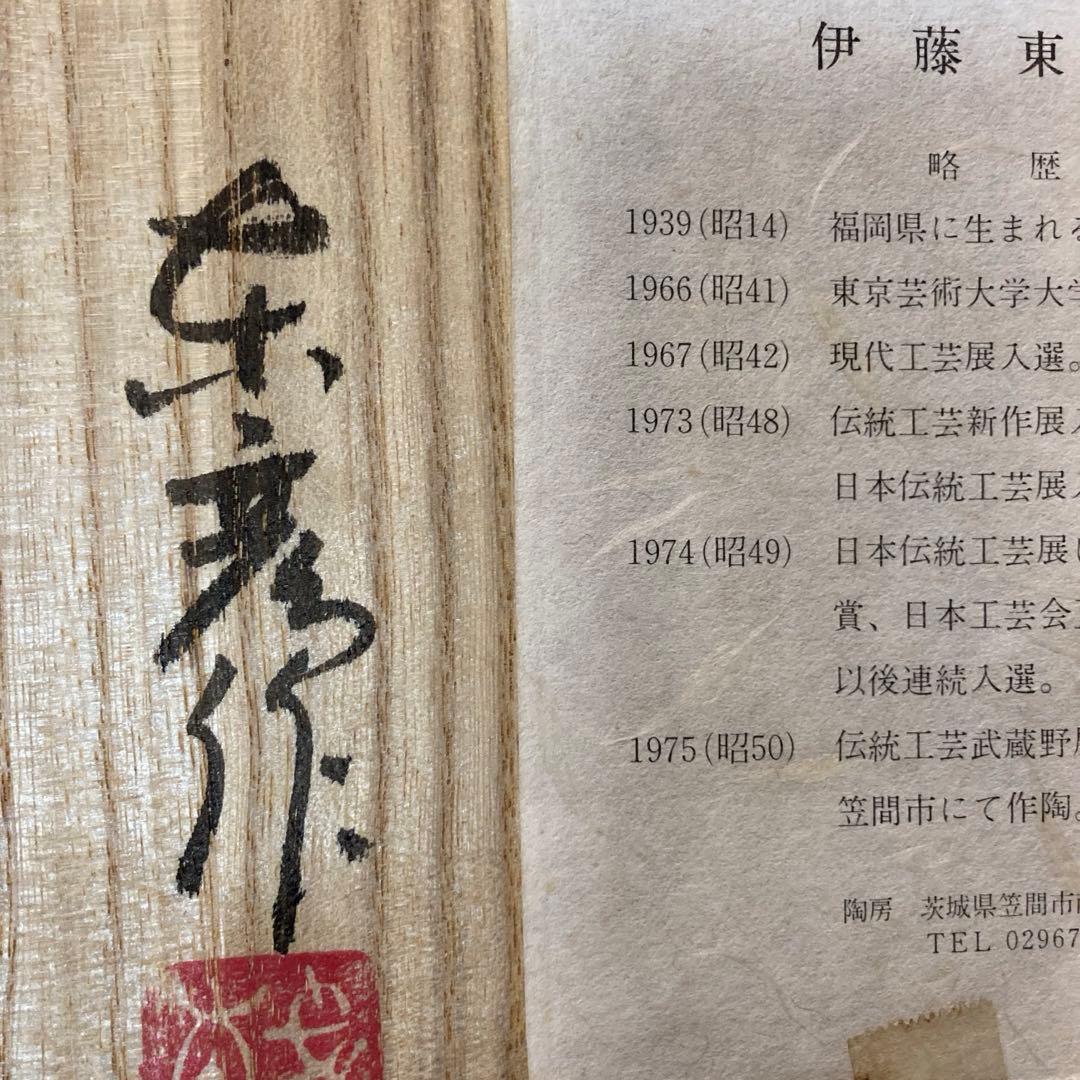 東彦作
伊藤東
略歴
1939(昭14) 福岡県に生まれる
1966(昭41) 東京芸術大学大学
1967(昭42) 現代工芸展入選。
1973(昭48) 伝統工芸新作展入
日本伝統工芸展入
1974(昭49) 日本伝統工芸展に
賞、日本工芸会正
以後連続入選。
1975(昭50) 伝統工芸武蔵野展
笠間市にて作陶。
陶房 茨城県笠間市
TEL 02967